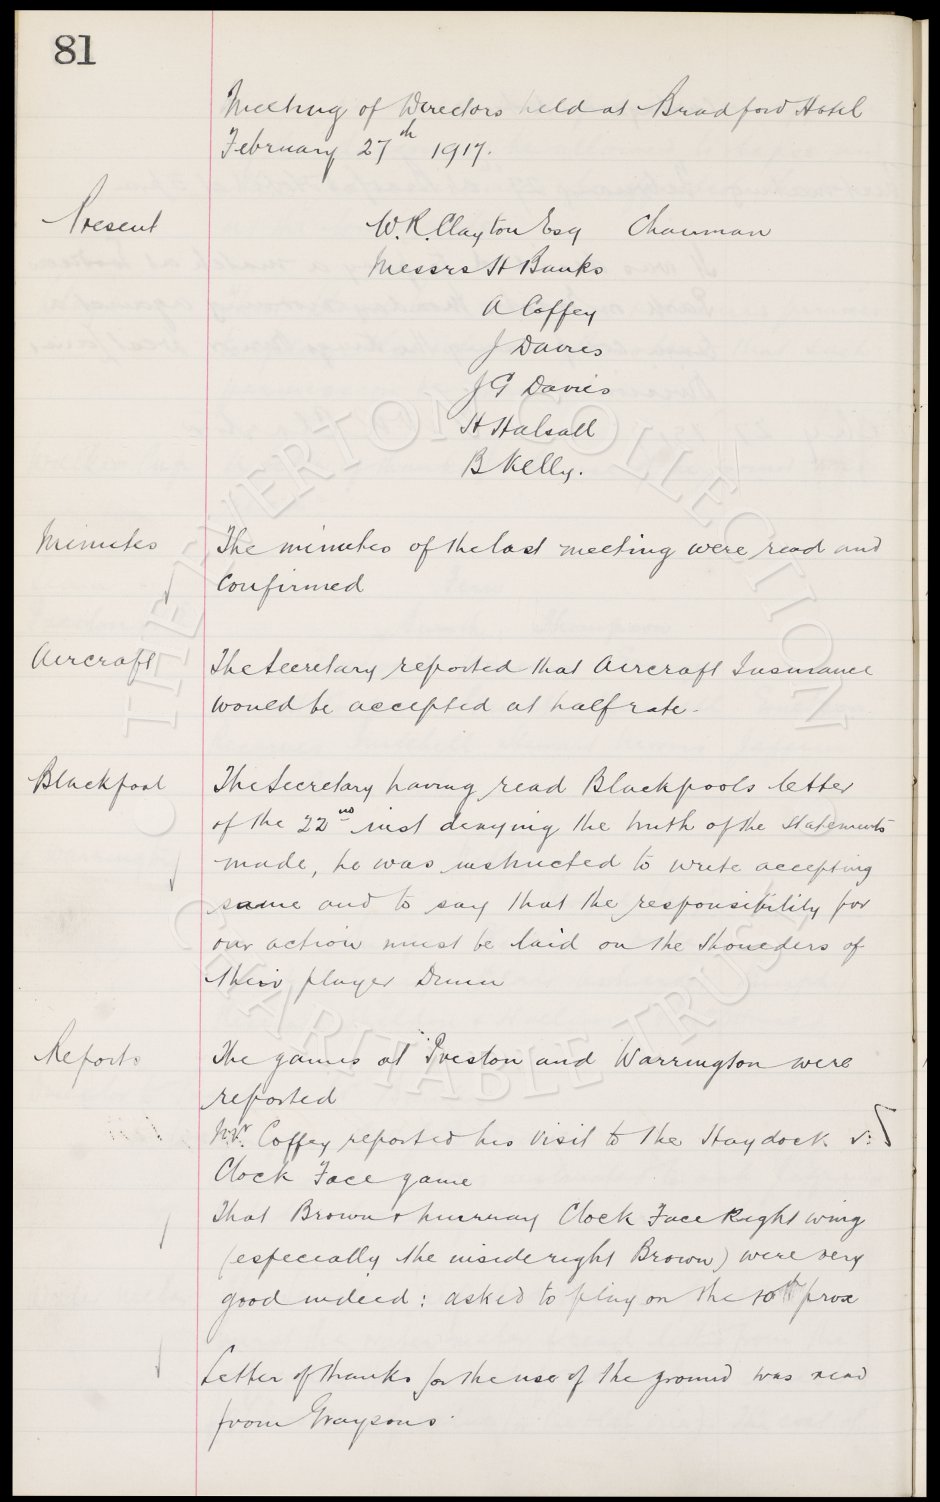 81
Meeting of Directors held at Bradford Hotel
February 27th 1917.
Present
W. R. Clayton Esq Chairman
Messrs H Banks
A Coffey
J Davies
J G Davies
H Halsall
B Kelly.
Minutes
The minutes of the last meeting were read and
Confirmed
Aircraft
The Secretary reported that Aircraft Insurance
would be accepted at half rate.
Blackpool
The Secretary having read Blackpools letter
of the 22nd inst denying the truth of the statements
made, he was instructed to write accepting
same and to say that the responsibility for
our action must be laid on the shoulders of
their player Dunn
Reports
The games at Preston and Warrington were
reported
Mr. Coffey reported his visit to the Haydock v.
Clock Face game
That Brown & Murray Clock Face Right wing
(especially the inside right Brown) were very
good indeed: asked to play on the 10th prox
Letter of thanks for the use of the ground was read
from Graysons.
THE EVERTON COLLECTION
CHARITABLE TRUST